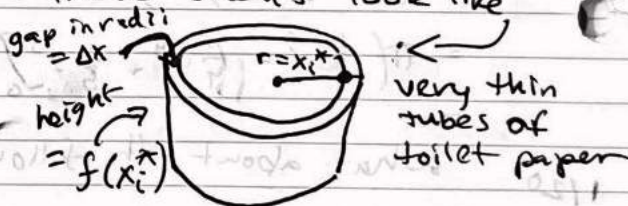 look like
gap in radii
= Δx
r = xᵢ*
height
= f(xᵢ*)
very thin
tubes of
toilet paper